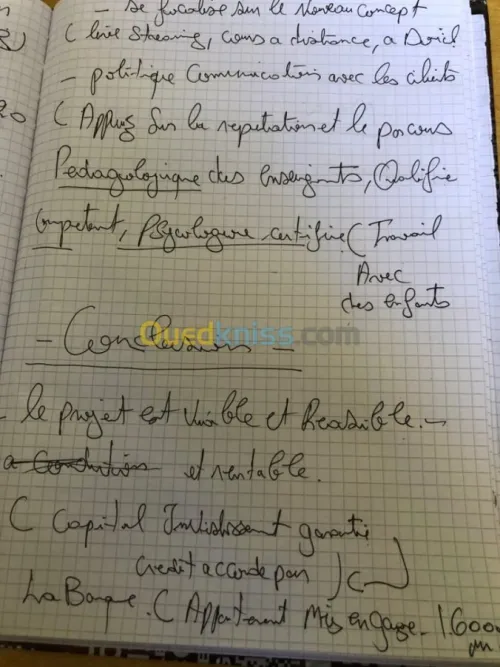 - se focalise sur le nouveau concept
( live streaming, cours a distance, a Domicil
- politique communication avec les clients
( Appuiz sur la reputation et le parcours
Pedagologique des enseignants, Qualifie
competant, psycologue certifie ( Travail
Avec
des enfants
Ouedkniss.com
- Conclusion -
- le projet est viable et Reasible. -
et rentable.
( Capital Invistissent garantie
credit accorde par
La Banque. ( Appartement Mis en gage - 1600